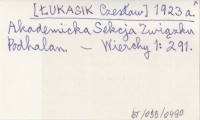 [ŁUKASIK Czesław] 1923 a.
Akademicka Sekcja Związku
Podhalan. — Wierchy 1: 291.